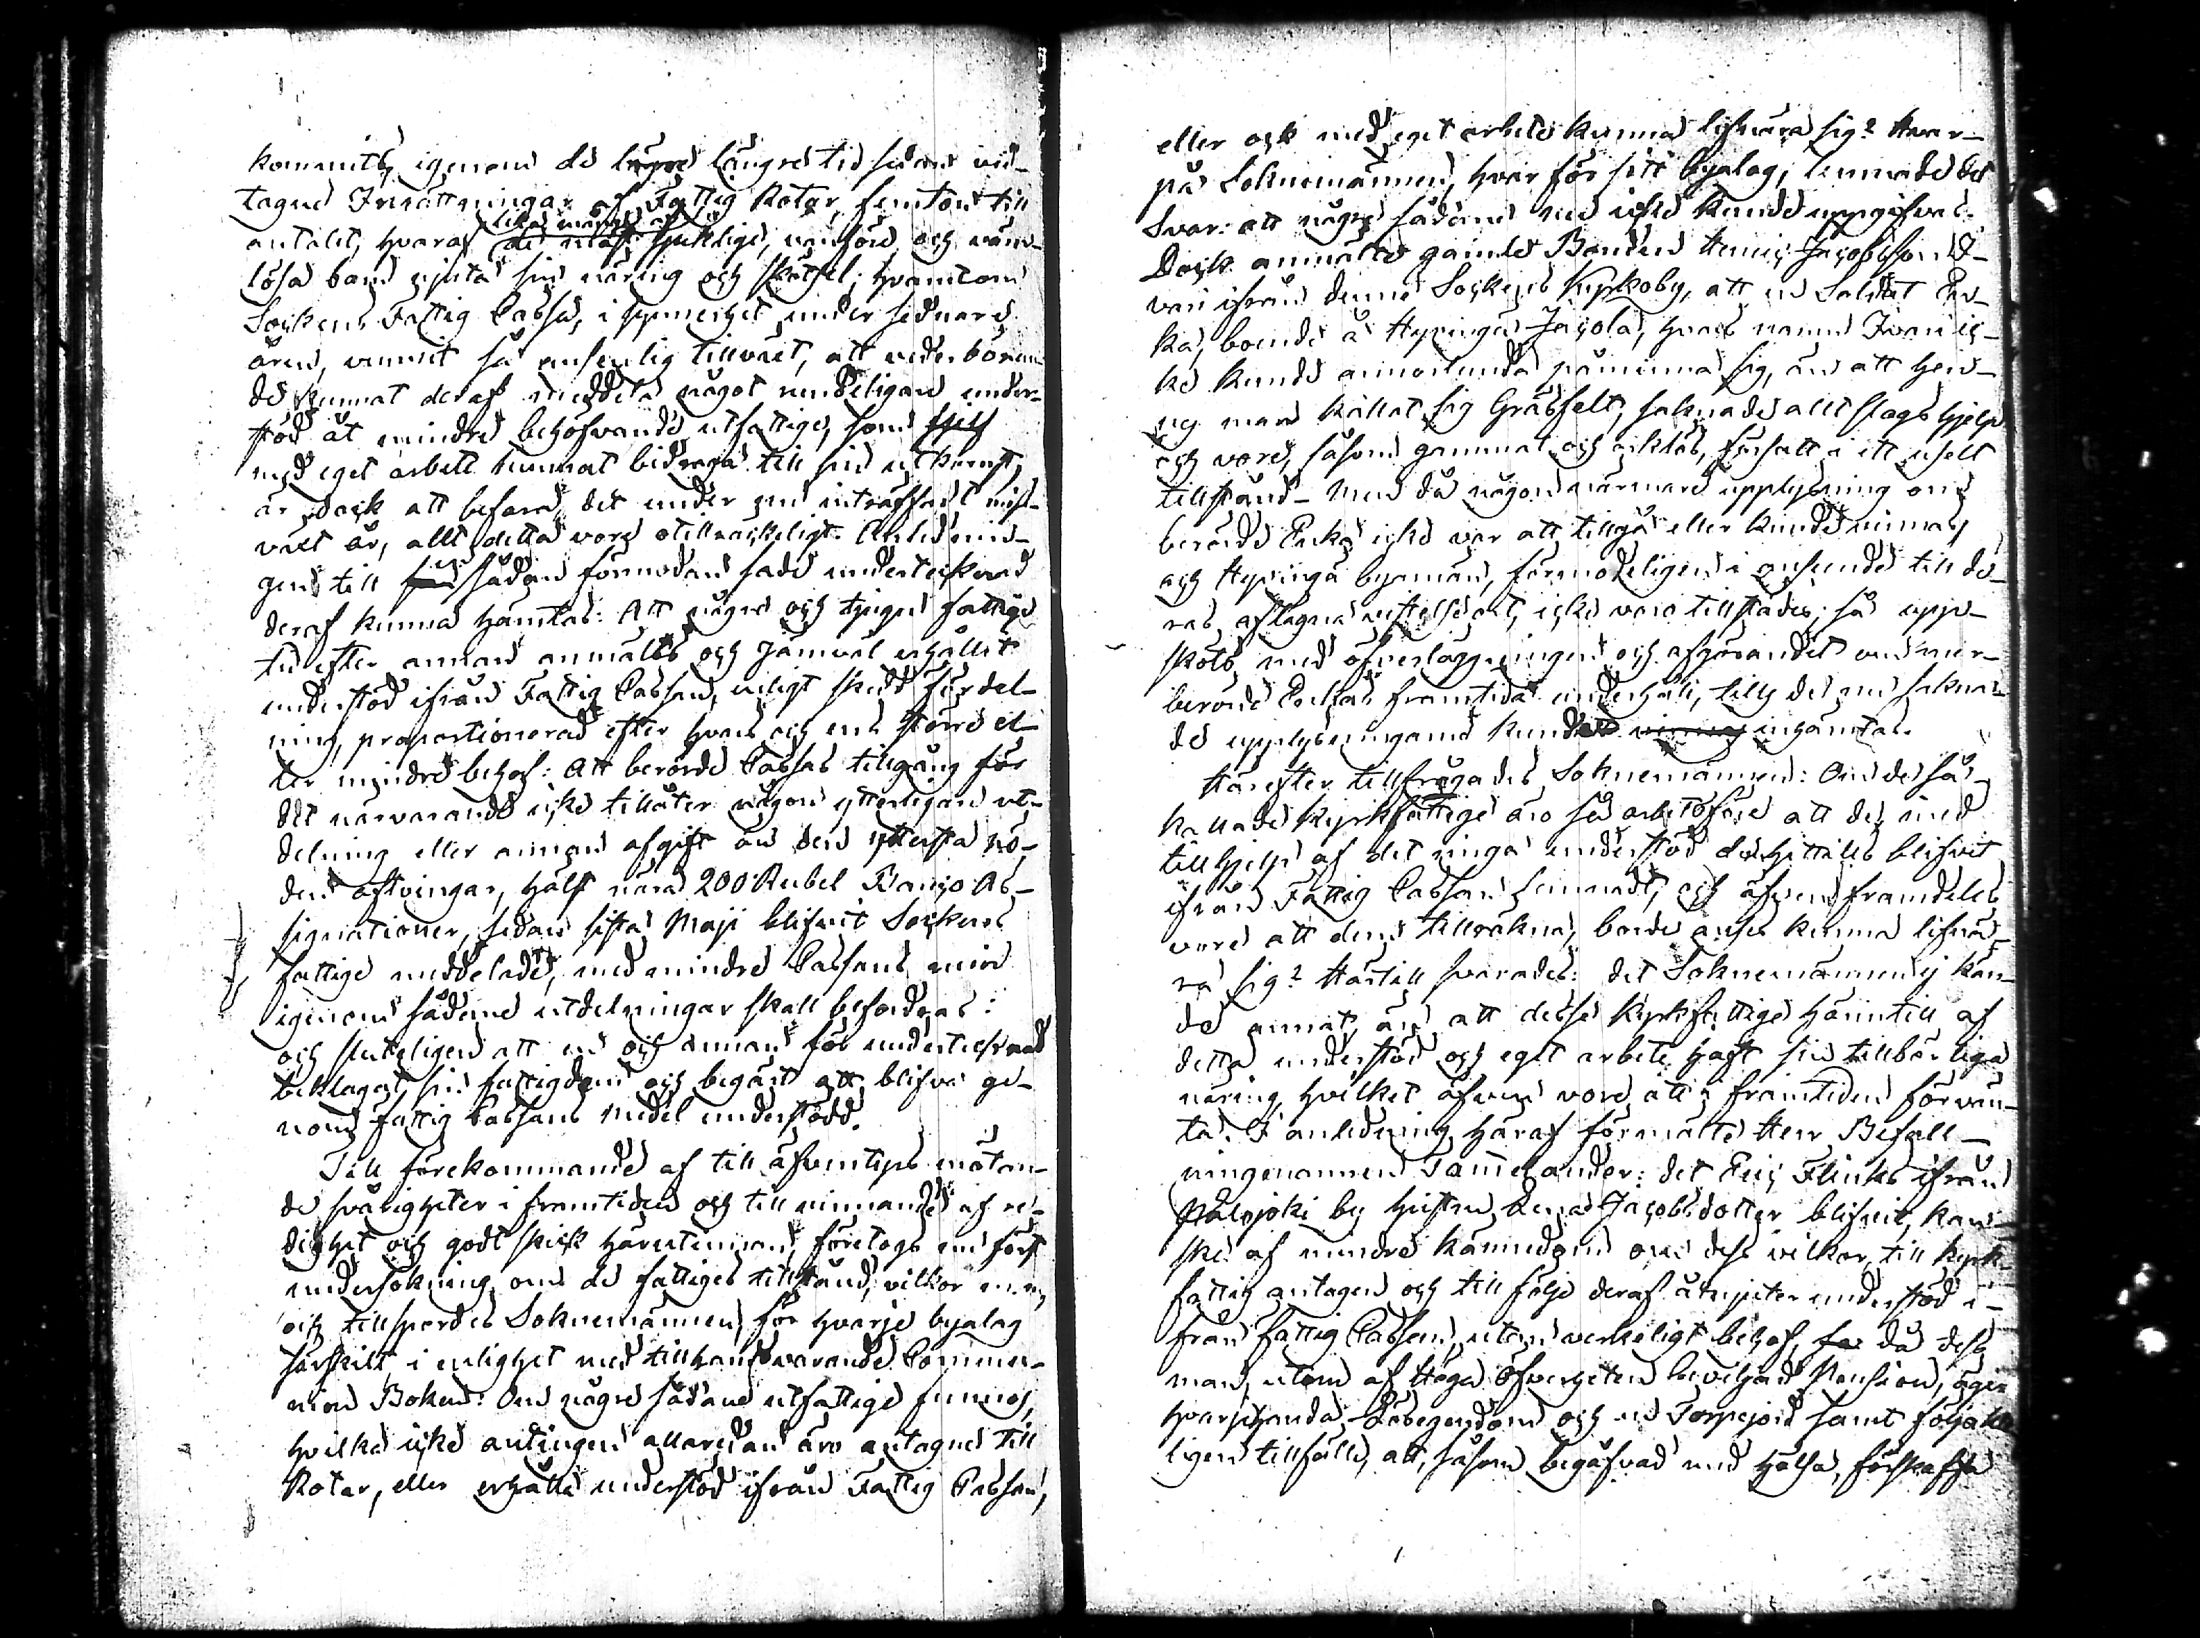 kommits, igenom de lägre längre tid sedan vid-
tagne Inrättningar af Fattig Rotar, femton till
lika många af
antalet, hvaraf de mäst sjuklige, vanföre och värn-
lösa barn njuta sin näring och skötsel; hvarutom
Sockens Fattig Cassa, i synnerhet under sednare
åren, vunnit så ansenlig tillväxt, att vederböran-
de kunnat deraf meddela något nödeligare under-
stöd åt mindre behöfvande utfattige, som sjelf
med eget arbete kunnat bidraga till sin utkomst,
är dock att befara, det under ens inträffad miss-
växt år, allt detta vore otillräckeligt. Anlednin-
gen till en sådan förmodan sade undertecknad
deraf kunna hämtas: Att någre och tjugu fattige
tid efter annan anmälts och jämväl erhållit
understöd ifrån Fattig Cassan, enligt skedd fördel-
ning, proportionerad efter hvars och ens större el-
ler mindre behof: Att berörde Cassas tillgång för
det närvarande icke tillåter någon ytterligare ut-
delning eller annan afgift än den yttersta nö-
den aftvingar, hälst nära 200 Rubel Banco As-
signationer, sedan sista Maji blifvit Sockens
fattige meddelade, med mindre Cassans ruin
igenom sådane utdelningar skall befordras:
och sluteligen att en och annan för undertecknad
beklagat sin fattigdom och begärt att blifva ge-
nom Fattig Cassans medel understödd.
Till förekommande af till äfventyrs mötan-
de svårigheter i framtiden och till vinnande af re-
dighet och godt skick härutinnan, företogs nu först
undersökning om de fattiges tillstånd, vilkor m.m.
och tillspordes Soknemännen, för hvarje byalag
särskilt i enlighet med tillhandavarande Commu-
nion Boken: Om någre sådane utfattige funnos,
hvilka icke antingen allaredan äro antagne till
Rotar, eller erhålla understöd ifrån Fattig Cassan,
eller ock med eget arbete kunna lifnära sig? Hvar-
på Soknemännen, hvar för sitt byalag, lemnade det
Svar: att någre sådane nu icke kunde uppgifvas.
Dock anmälte gamle Bonden Henric Jacobsson
vari ifrån denne Sockens Kyrkoby, att en Soldat En-
ka, boende å Hyvinge Jacola, hvars namn Ivari ic-
ke kunde annorlunda påminna sig, än att hen-
nes man kallat sig Gråsfelt, saknade allt slags hjelp
och vore, såsom gammal och orklös, försatt i ett uselt
tillstånd. Men då någon närmare upplysning om
berörde Enka icke var att tillgå eller kunde vinnas,
och Hyvinge byamän, förmodeligen i anseende till de-
ras aflägsna vistelseort, icke voro tillstädes; så upp-
sköts med öfverläggningen och afgörandet om mer-
berörde Enkas framtida underhåll, tills de nu sakna-
de upplysningarne kunde vinnas inhämtas.
Härefter tillfrågades Soknemännen: Om de så
kallade Kyrkfattige äro så arbetsföre att de, med
tillhjelp af det ringa understöd de hittills blifvit
ifrån Fattig Cassan lemnadt, och äfven framdeles
vore att dem tillräkna, borde anses kunna lifnä-
ra sig? Härtill svarades: det Soknemännen ej kän-
de annat, än att desse Kyrkfattige härintill af
detta understöd och eget arbete haft sin tillbörliga
näring, hvilket äfven vore att i framtiden förvän-
ta. I anledning häraf förmälte Herr Befall-
ningsmannen Tammelander: det Eric Flinks ifrån
Palojoki by hustru Lena Jacobsdotter blifvit, kan-
ske af mindre kännedom om dess vilkor, till Kyrk-
fattig antagen och till följe deraf åtnjuter understöd i-
från Fattig Cassan, utan verkeligt behof, då dess
man, utom af Höga Öfverheten beviljad Pension, äger
hvarjehanda Lösegendom och en Torpejord samt följakte-
ligen tillfälle, att, såsom begåfvad med hälsa, förskaffa